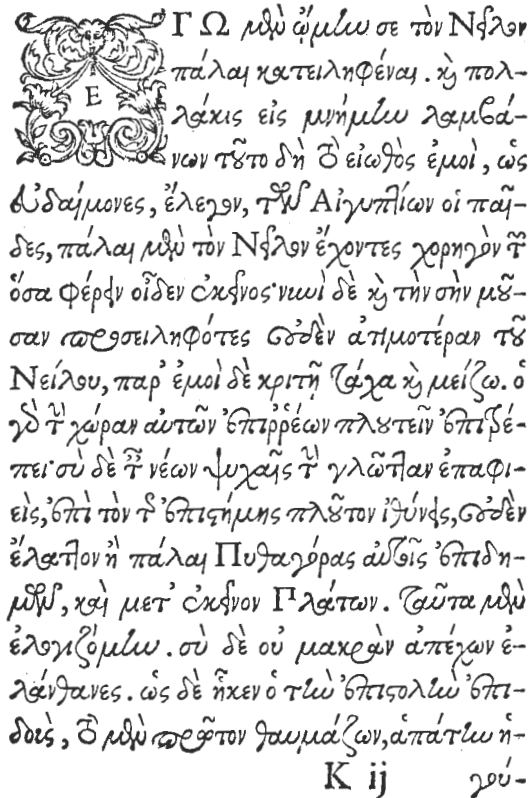 ΕΓΩ μὲν ᾤμην σε τὸν Νεῖλον
πάλαι κατειληφέναι. καὶ πολ-
λάκις εἰς μνήμην λαμβά-
νων τοῦτο δὴ τὸ εἰωθὸς ἐμοὶ, ὡς
εὐδαίμονες, ἔλεγον, τῶν Αἰγυπτίων οἱ παῖ-
δες, πάλαι μὲν τὸν Νεῖλον ἔχοντες χορηγὸν τῶν
ὅσα φέρειν οἶδεν ἐκεῖνος· νυνὶ δὲ καὶ τὴν σὴν μοῦ-
σαν προσειληφότες οὐδὲν ἀτιμοτέραν τοῦ
Νείλου, παρ' ἐμοὶ δὲ κριτῇ τάχα καὶ μείζω. ὁ
γὰρ τὴν χώραν αὐτῶν ἐπιῤῥέων πλουτεῖν ἐπιτρέ-
πει· σὺ δὲ τῶν νέων ψυχαῖς τὴν γλῶτταν ἐπαφι-
εὶς, ἐπὶ τὸν τῆς ἐπιστήμης πλοῦτον ἰθύνεις, οὐδὲν
ἔλαττον ἢ πάλαι Πυθαγόρας αὐτοῖς ἐπιδη-
μῶν, καὶ μετ' ἐκεῖνον Πλάτων. ταῦτα μὲν
ἐλογιζόμην. σὺ δὲ οὐ μακρὰν ἀπέχων ἐ-
λάνθανες. ὡς δὲ ἧκεν ὁ τὴν ἐπιστολὴν ἐπι-
δοὺς, τὸ μὲν πρῶτον θαυμάζων, ἀπάτην ἡ-
K ij γού-